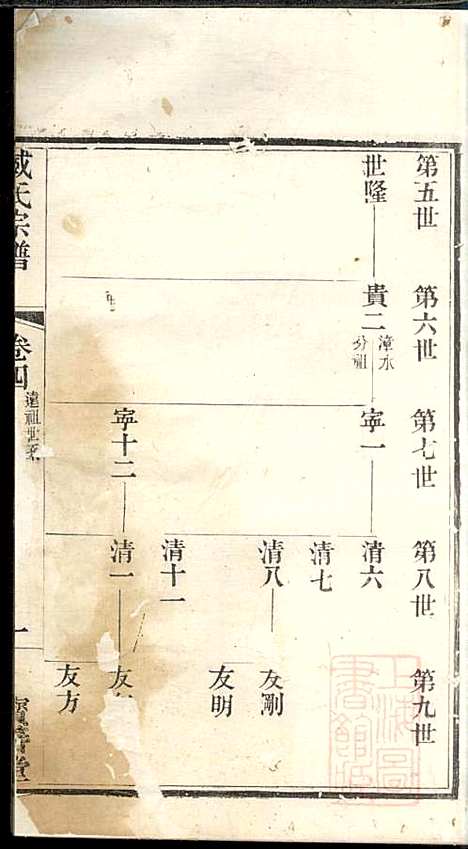 第五世
世隆
第六世
貴二
漳水
分祖
第七世
寧一
寧十二
第八世
清六
清七
清八
清十一
清一
第九世
友剛
友明
友
友方
戚氏宗譜
卷四
遠祖世系
一
上海圖書館